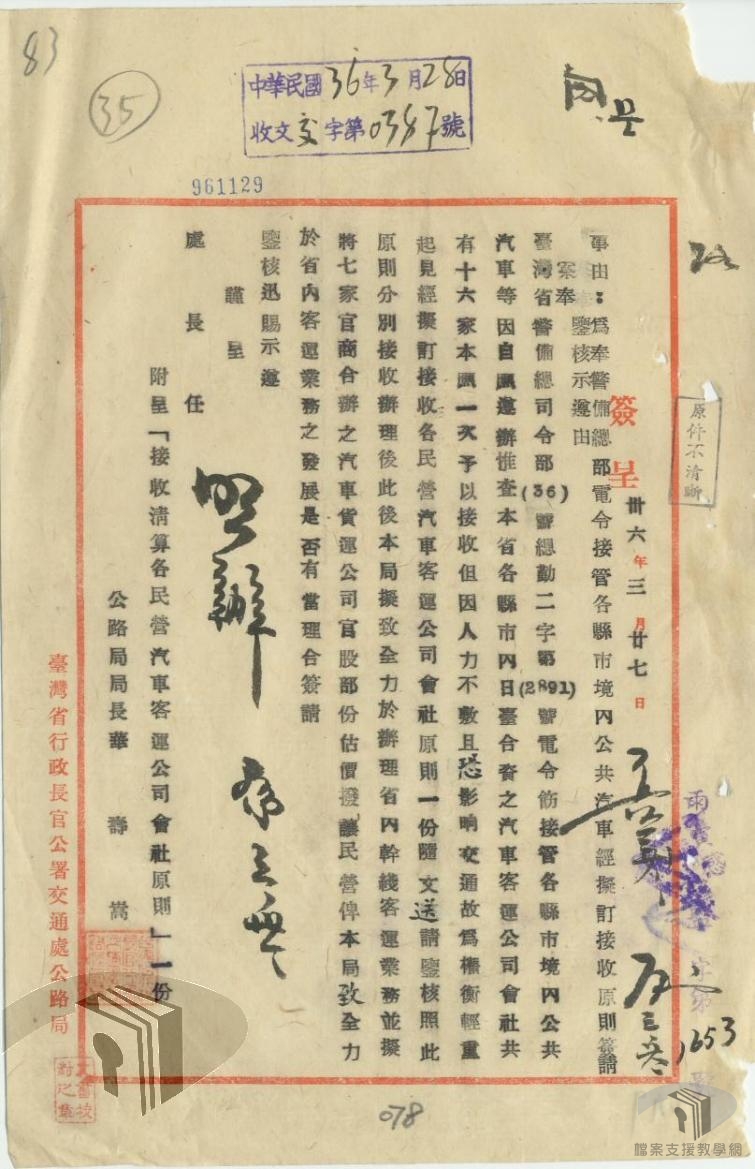 83
35
中華民國36年3月28日
收文交字第0387號
961129
原件不清晰
簽呈 卅六年三月廿七日
事由：爲奉警備總部電令接管各縣市境內公共汽車經擬訂接收原則簽請
鑒核示遵由
案奉
臺灣省警備總司令部(36)號總勤二字第(2891)號電令飭接管各縣市境內公共
汽車等因自應遵辦惟查本省各縣市內日臺合資之汽車客運公司會社共
有十六家本應一次予以接收但因人力不敷且恐影响交通故爲權衡輕重
起見經擬訂接收各民營汽車客運公司會社原則一份隨文送請鑒核照此
原則分別接收辦理後此後本局擬致全力於辦理省內幹綫客運業務並擬
將七家官商合辦之汽車貨運公司官股部份估價撥讓民營俾本局致全力
於省內客運業務之發展是否有當理合簽請
鑒核迅賜示遵
謹呈
處長任
附呈「接收清算各民營汽車客運公司會社原則」一份
公路局局長華壽嵩
照辦
臺灣省行政長官公署交通處公路局
字第1653號
文書校對之章
078
檔案支援教學網